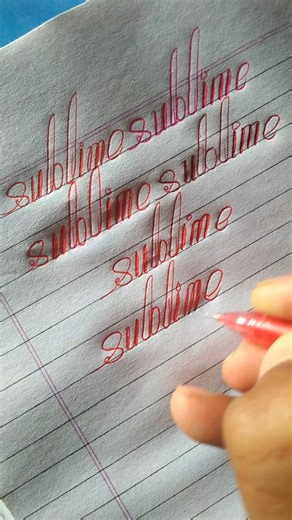 sublime sublime
sublime sublime
sublime
sublime